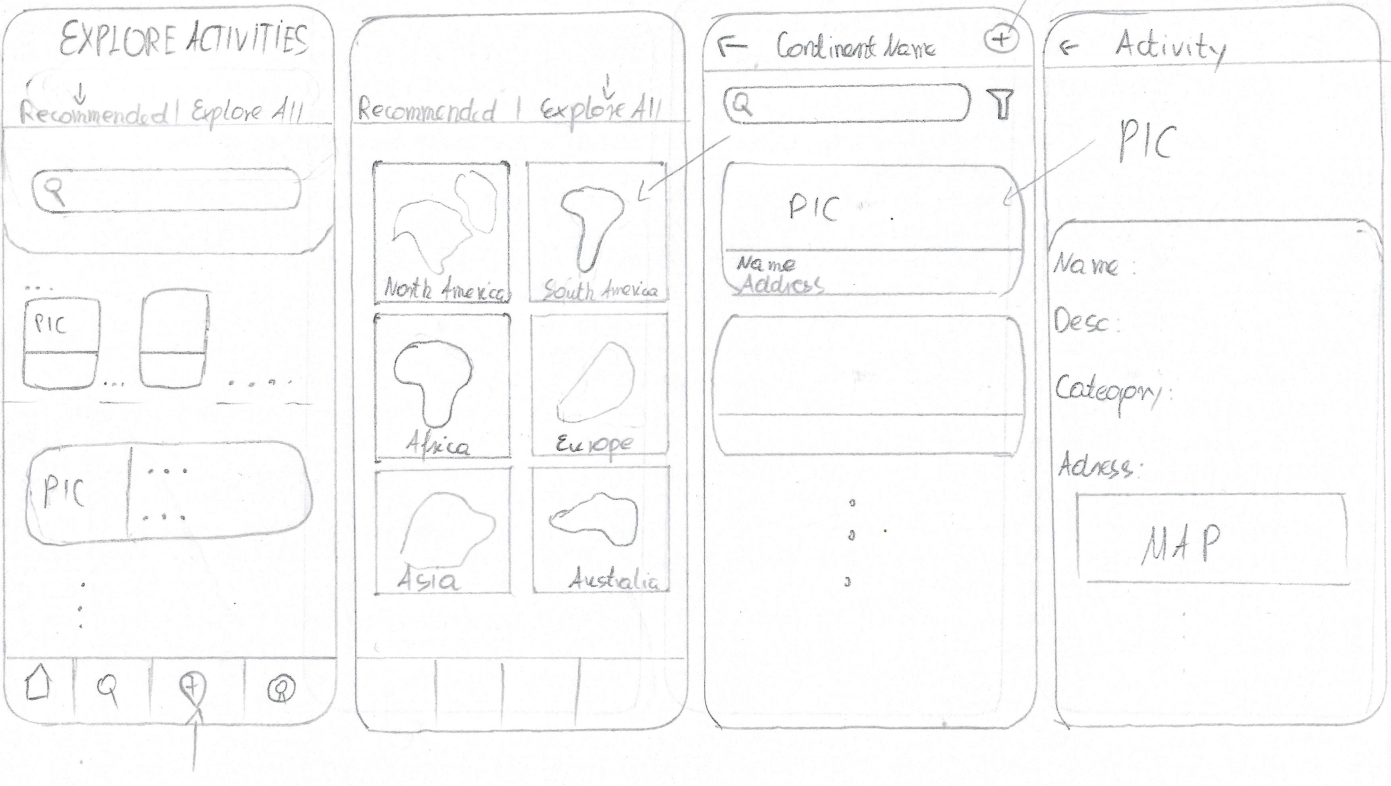 EXPLORE ACTIVITIES
Recommended | Explore All
PIC
PIC
Recommended | Explore All
North America
South America
Africa
Europe
Asia
Australia
Continent Name
PIC
Name
Address
Activity
PIC
Name :
Desc :
Category:
Adress:
MAP